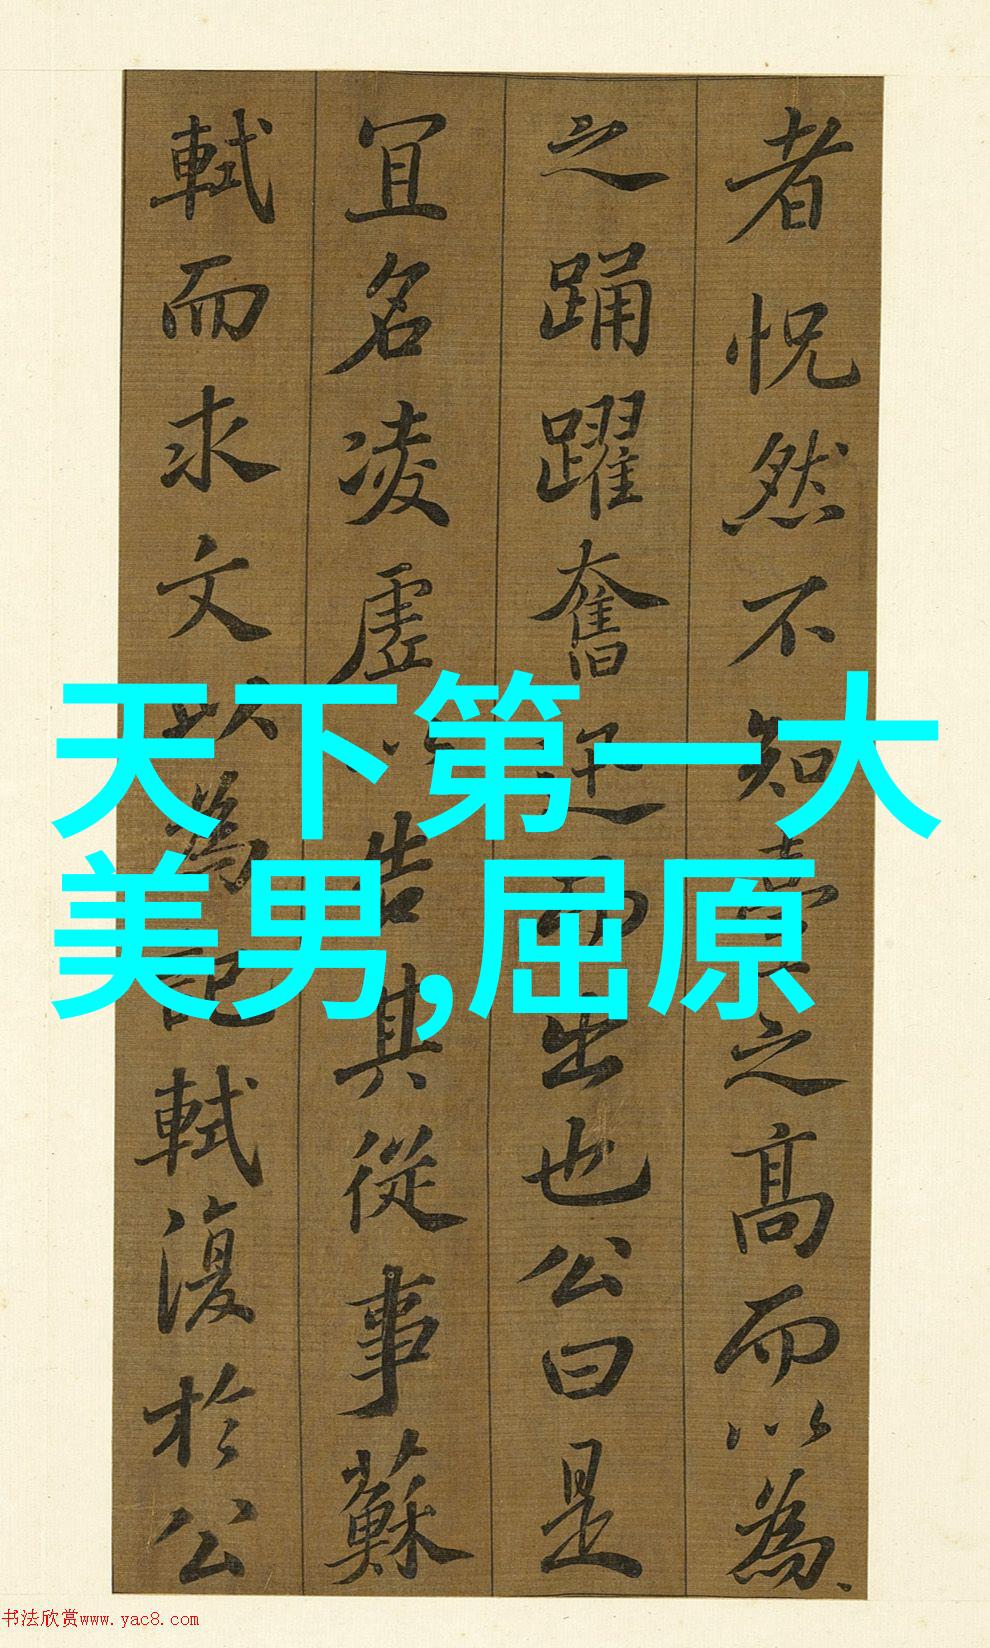 者怳然不知臺之高而以為
之踊躍奮迅而出也公曰是
宜名凌虛以告其從事蘇
軾而求文以為記軾復於公
天下第一大
美男,屈原
书法欣赏www.yac8.com